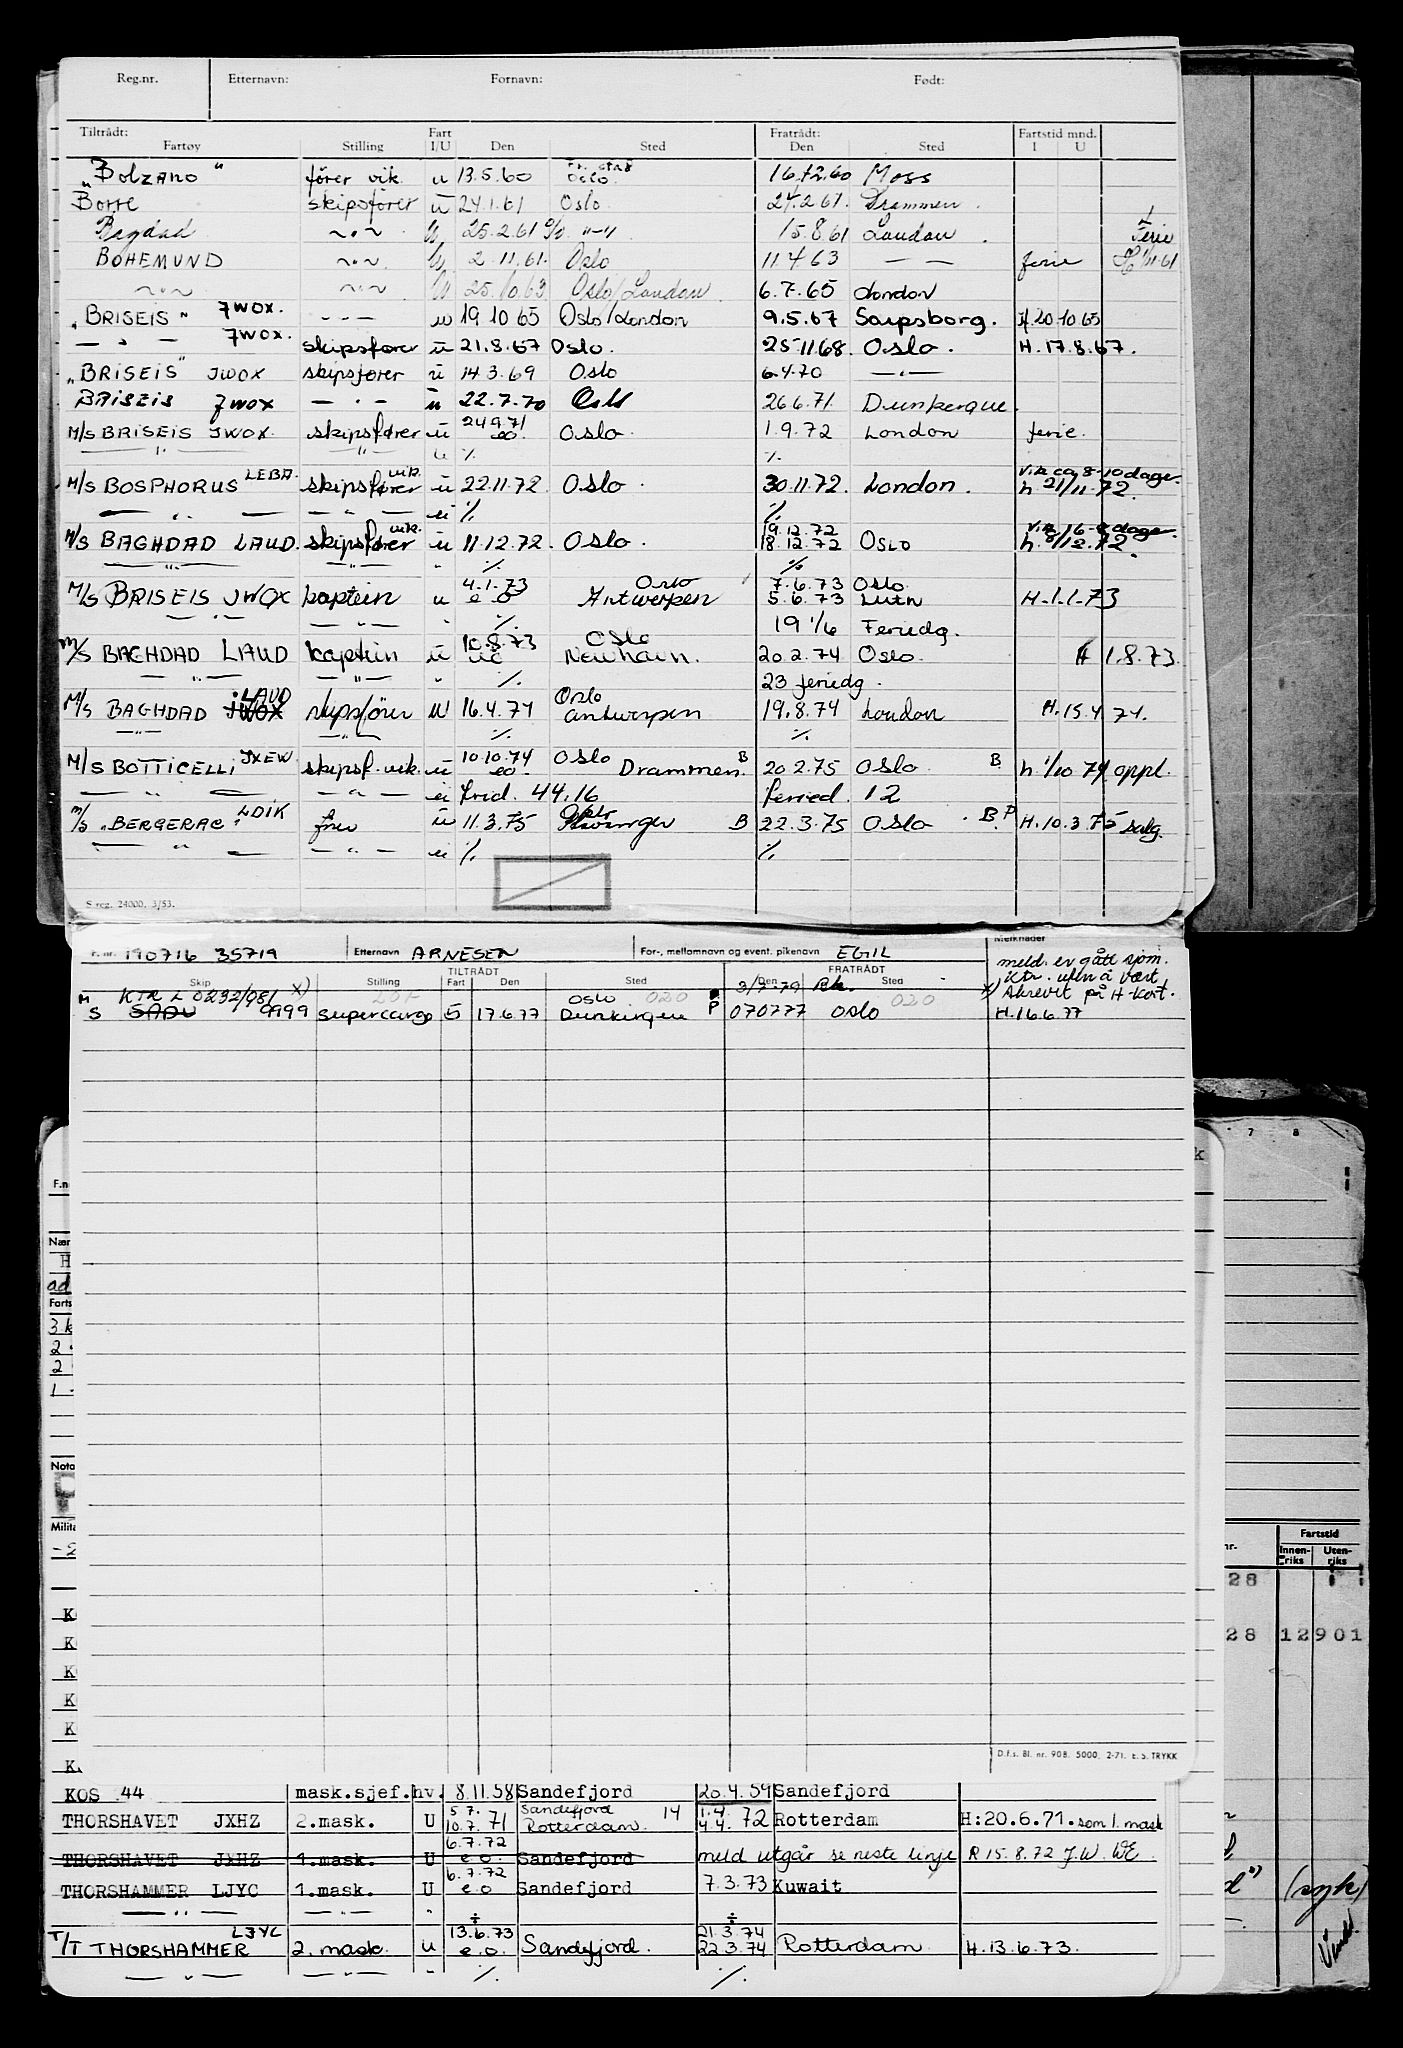 Reg.nr. Etternavn: Fornavn: Født:
Tiltrådt: Fratrådt: Fartstid mnd.
Fartøy Stilling Fart I/U Den Sted Den Sted I U
"Bolzano" fører vik. u 13.5.60 Oslo. 16.12.60 Moss
Borre skipsfører u 24.1.61 Oslo 24.2.61. Drammen.
Bagdad -"- U 25.2.61 -"- 15.8.61 London. Ferie
BOHEMUND -"- U 2.11.61. Oslo 11.4.63 — — ferie 1/11.61
-"- -"- U 25.10.63 Oslo/London 6.7.65 London
"BRISEIS" JWOX. - - - u 19.10.65 Oslo/London 9.5.67 Sarpsborg. H.20.10.65
— " — JWOX. skipsfører u 21.8.67 Oslo. 25.11.68. Oslo. H.17.8.67.
"BRISEIS" JWOX skipsfører u 14.3.69 Oslo 6.4.70 — " —
BRISEIS JWOX — " — u 22.7.70 Oslo 26.6.71. Dunkerque.
M/S BRISEIS JWOX. skipsfører u 24.9.71 eo Oslo. 1.9.72 London ferie.
— " — — " — u % %
M/S BOSPHORUS LEBA. skipsfører vik. u 22.11.72. Oslo. 30.11.72. London. vik ca 8-10 dager h. 21/11.72.
— " — — " — u % %
M/S BAGHDAD LAUD. skipsfører vik. u 11.12.72. Oslo. 19.12.72 18.12.72 Oslo h. 8/12.72.
— " — — " — " % %
M/S BRISEIS JWOX kaptein u 4.1.73 e.o Oslo Antwerpen 7.6.73 5.6.73 Oslo H.1.1.73
— " — — " — " % 19 1/6 Feriedg.
M/S BAGHDAD LAUD kaptein u 10.8.73 Oslo Newhavn. 20.2.74 Oslo. H 1.8.73.
— " — — " — " % 23 feriedg.
M/S BAGHDAD JWOX LAUD skipsfører u 16.4.74 Oslo Antwerpen 19.8.74 London H.15.4.74.
— " — — " — % %
M/S BOTTICELLI JXEW. skipsf. vik. u 10.10.74 eo. Oslo Drammen. B 20.2.75 Oslo. B h. 1/10 74 oppl.
— " — — " — u 44.16 12
M/S "BERGERAC" LDIK u 11.3.75 Oslo B 22.3.75 Oslo. B.P H.10.3.75
— " — — " — u % %
S reg. 24000. 3/53.
F.nr. 190716 35719 Etternavn ARNESEN For-, mellomnavn og event. pikenavn EGIL Merknader
TILTRÅDT FRATRÅDT
Skip Stilling Fart Den Sted Den Sted
meld. er gått sjøm.
ktr. uten å vært
x) skrevet på H-kort.
M KTR L 0232/981 x) Oslo 020 3/7-79 Rk. 020
S SADU 9999 supercargo 5 17.6.77 P 070777 Oslo H.16.6.77
D.f.s. Bl. nr. 908. 5000. 2-71. E. S. TRYKK
7 8
k
F.n
Nær
H
ad
Farts
3 k
2
2
1
Nota
Milit
Fartstid
nr. Innen-riks Uten-riks
28
28 12901
K
K
K
K
K
K.
KOS 44 mask.sjef. hv. 8.11.58 Sandefjord 20.4.59 Sandefjord
THORSHAVET JXHZ 2.mask. U 5.7. 10.7. 71 Sandefjord Rotterdam. 14 1.4. 4.4. 72 Rotterdam H:20.6.71. som 1. mask
THORSHAVET JXHZ 1.mask. U 6.7.72 e.o. Sandefjord meld utgår se neste linje R 15.8.72 J.W. WE.
THORSHAMMER LJYC 1.mask. U 6.7.72 e.o Sandefjord 7.3.73 Kuwait
— " — — " — " ÷ ÷
T/T THORSHAMMER LJYC 2.mask. u 13.6.73 e.o. Sandefjord. 21.3.74 22.3.74 Rotterdam H.13.6.73.
— " — — " — " % %
(syk)